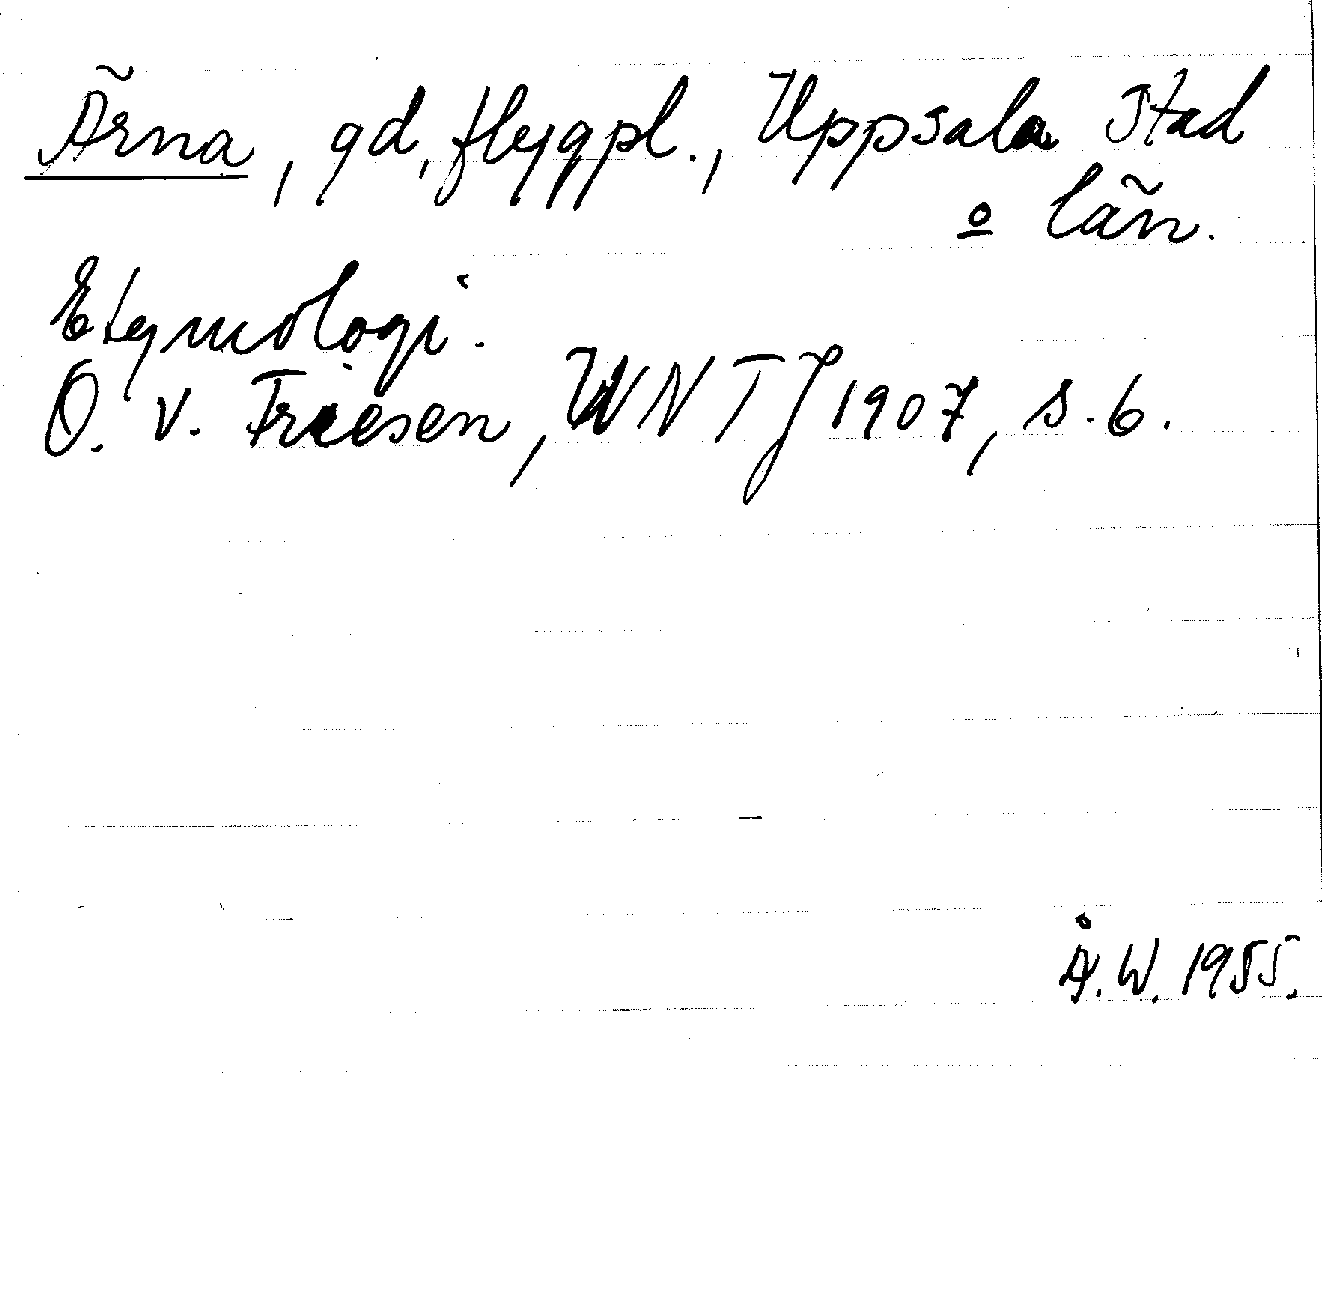 Ärna, gd, flygpl., Uppsala stad
o län.
Etymologi.
O. v. Friesen, UNTJ 1907, s. 6.
Å.W. 1955.